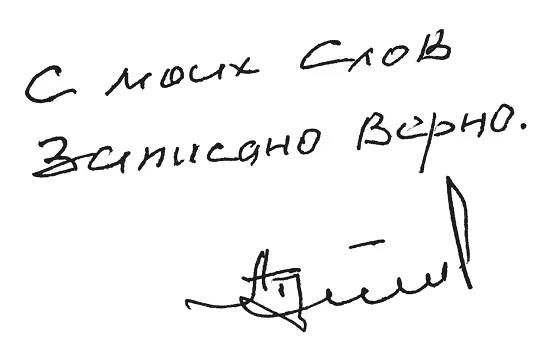 С моих слов
записано верно.